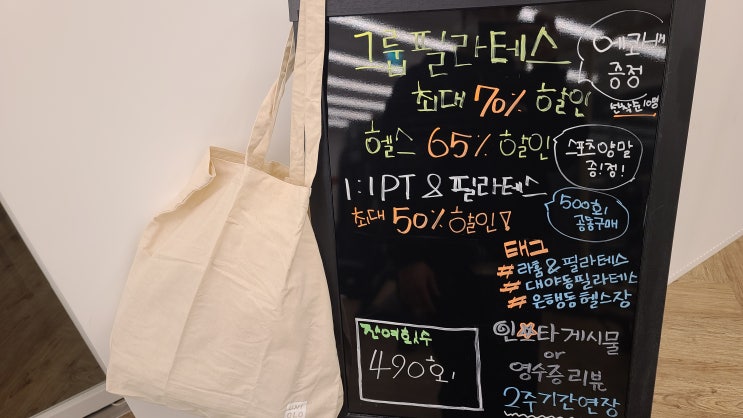 그룹필라테스
에코백
증정
선착순10명
최대 70% 할인
헬스 65% 할인
스포츠양말
증!정!
1:1 PT & 필라테스
최대 50% 할인!
500회
공동구매
태그
#라훔&필라테스
#대야동필라테스
#은행동헬스장
잔여회수
490회
인스타게시물
or
영수증리뷰
2주기간연장